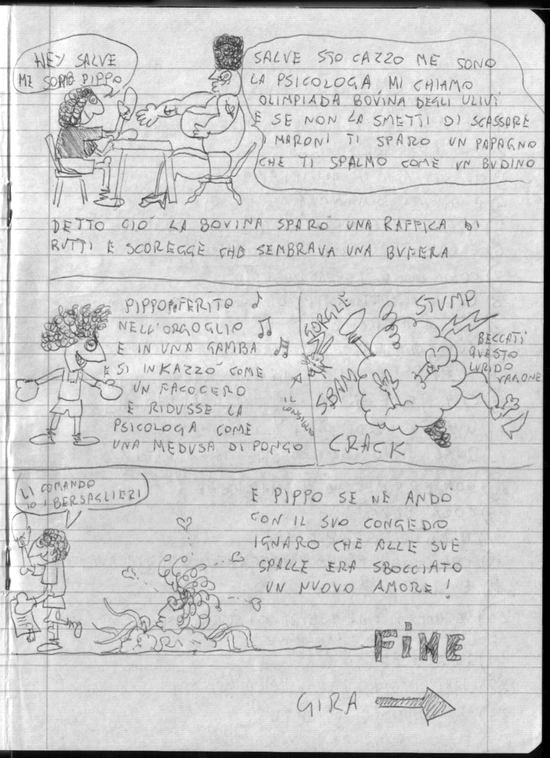 HEY SALVE
ME SONO PIPPO
SALVE STO CAZZO ME SONO
LA PSICOLOGA, MI CHIAMO
OLIMPIADA BOVINA DEGLI ULIVI
E SE NON LA SMETTI DI SCASSARE
I MARONI TI SPARO UN PAPAGNO
CHE TI SPALMO COME UN BUDINO
DETTO CIÒ LA BOVINA SPARÒ UNA RAFFICA DI
RUTTI E SCOREGGE CHE SEMBRAVA UNA BUFERA
PIPPO FERITO
NELL'ORGOGLIO
E IN UNA GAMBA
SI INKAZZÒ COME
UN FACOCERO
E RIDUSSE LA
PSICOLOGA COME
UNA MEDUSA DI PONGO
GORGLE
STUMP
BECCATI
QUESTO
LURIDO
VARONE
SBAM
IL
CRACK
LI COMANDO
IO I BERSAGLIERI
E PIPPO SE NE ANDÒ
CON IL SUO CONGEDO
IGNARO CHE ALLE SUE
SPALLE ERA SBOCCIATO
UN NUOVO AMORE!
FINE
GIRA